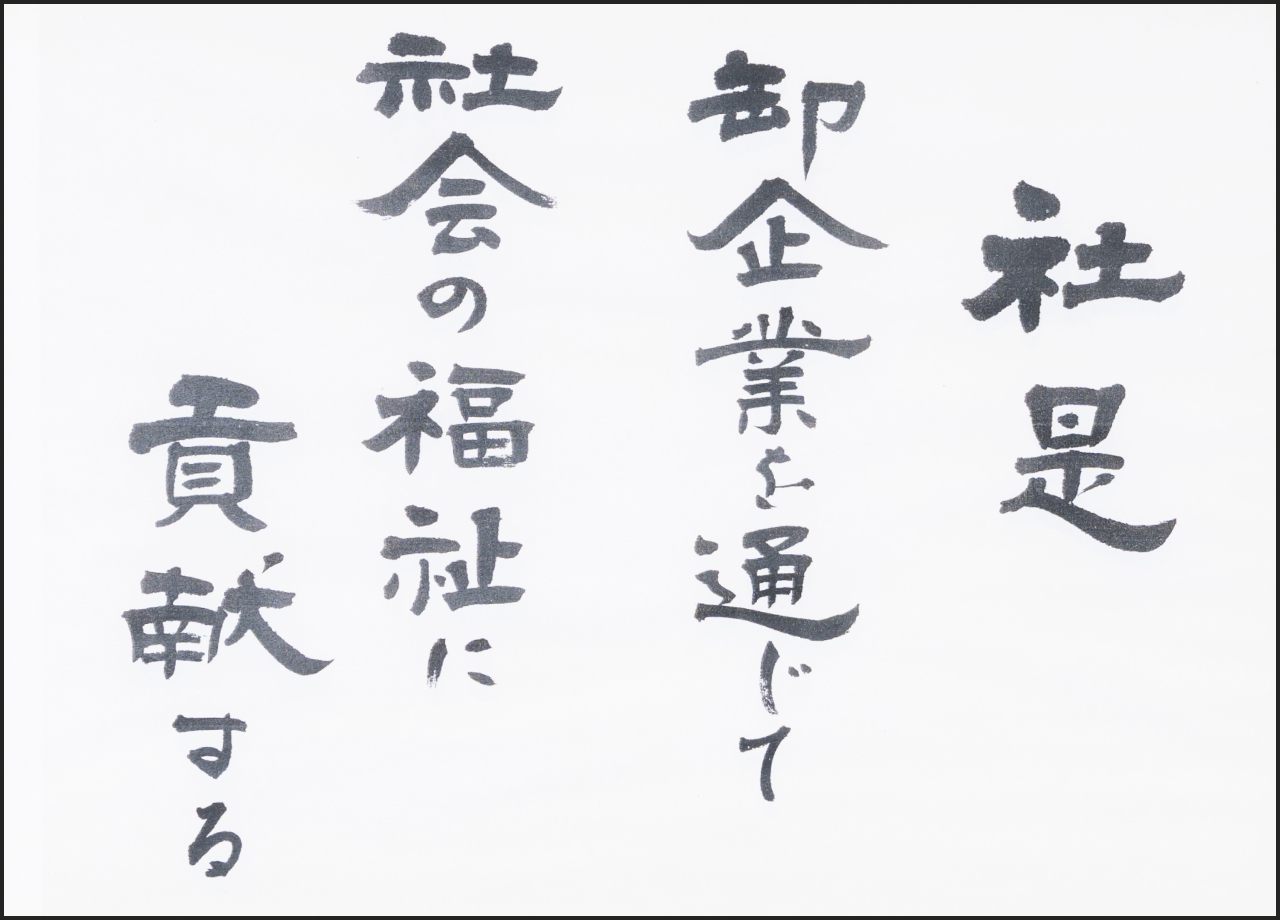 社是
卸企業を通じて
社会の福祉に
貢献する